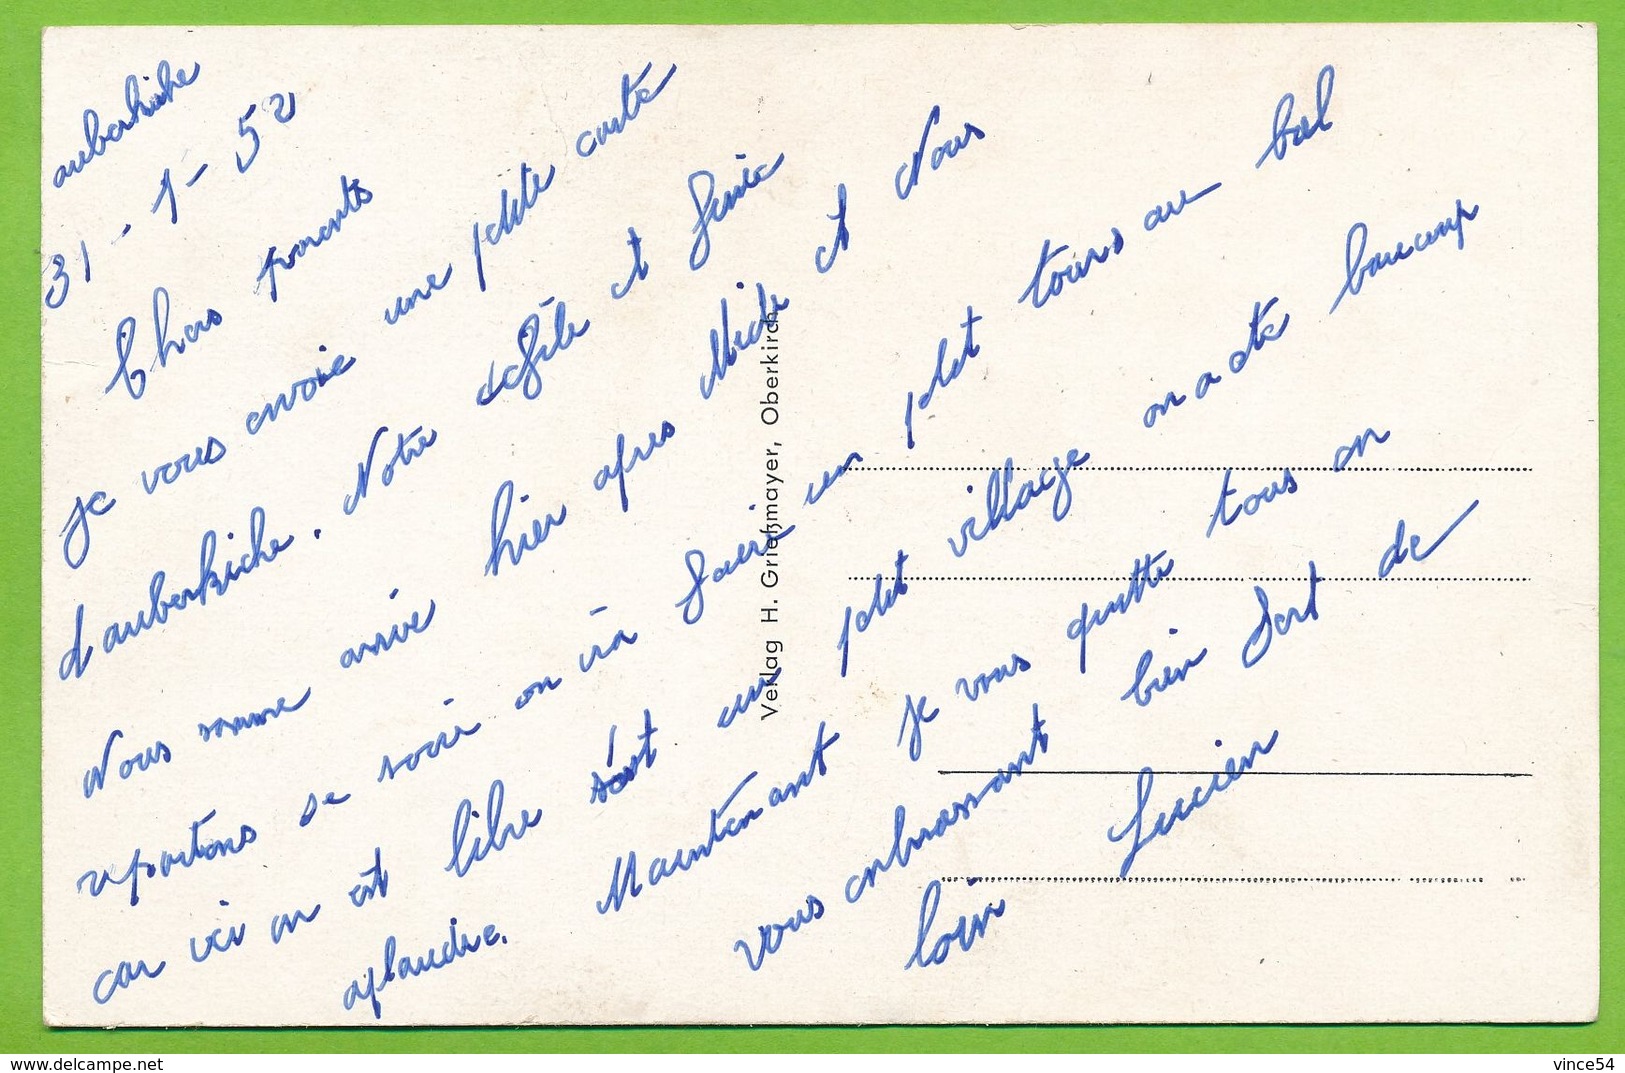 auberkiche
31-1-52
Chers parents
je vous envoie une petite carte
d'auberkiche. Notre défilé et finie
Nous somme arrivé hier apres Midi et Nous
repartons se soire on ira faire un petit tours au bal
car ici on est libre s'est un petit village on a ete baucoup
aplaudie. Maintenant je vous quitte tous en
vous embrassant bien fort de
loin Lucien
Verlag H. Grießmayer, Oberkirch
delcampe.net
vince54